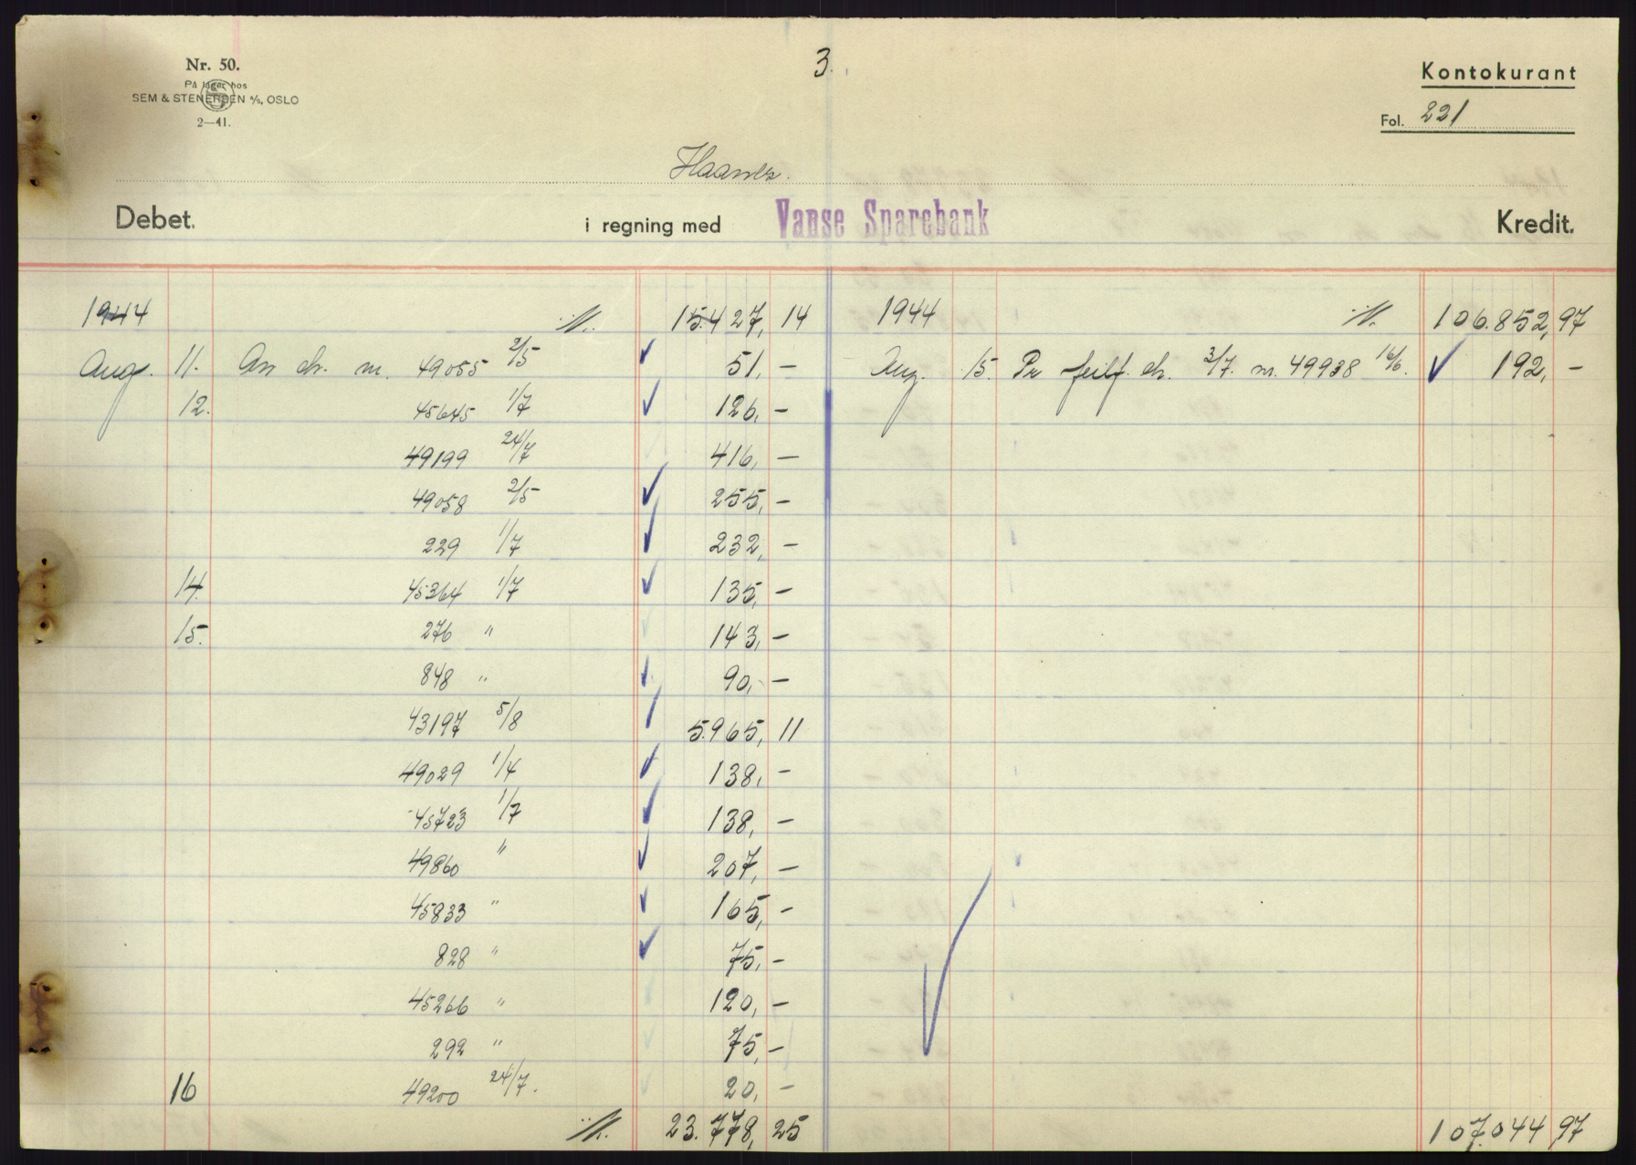 Nr. 50.
3.
Kontokurant
På lager hos
SEM & STENERSEN A/S, OSLO
2—41.
Fol. 221
Debet. i regning med Vanse Sparebank Kredit.
1944 15.427,14 1944 106.852,97
Aug. 11. An ch. nr. 49055 2/5 51,- Aug. 15. Pr feilf. ch. 3/7. nr. 49938 192,-
12. 45645 1/7 126,-
49199 24/7 416,-
49058 2/5 255,-
229 1/7 232,-
14. 45364 1/7 135,-
15. 276 " 143,-
848 " 90,-
43197 5/8 5.965,11
49029 1/4 138,-
45723 1/7 138,-
49860 " 207,-
45833 " 165,-
828 " 75,-
45266 " 120,-
292 " 75,-
16 49200 24/7. 20,-
23.778,25 107.044,97